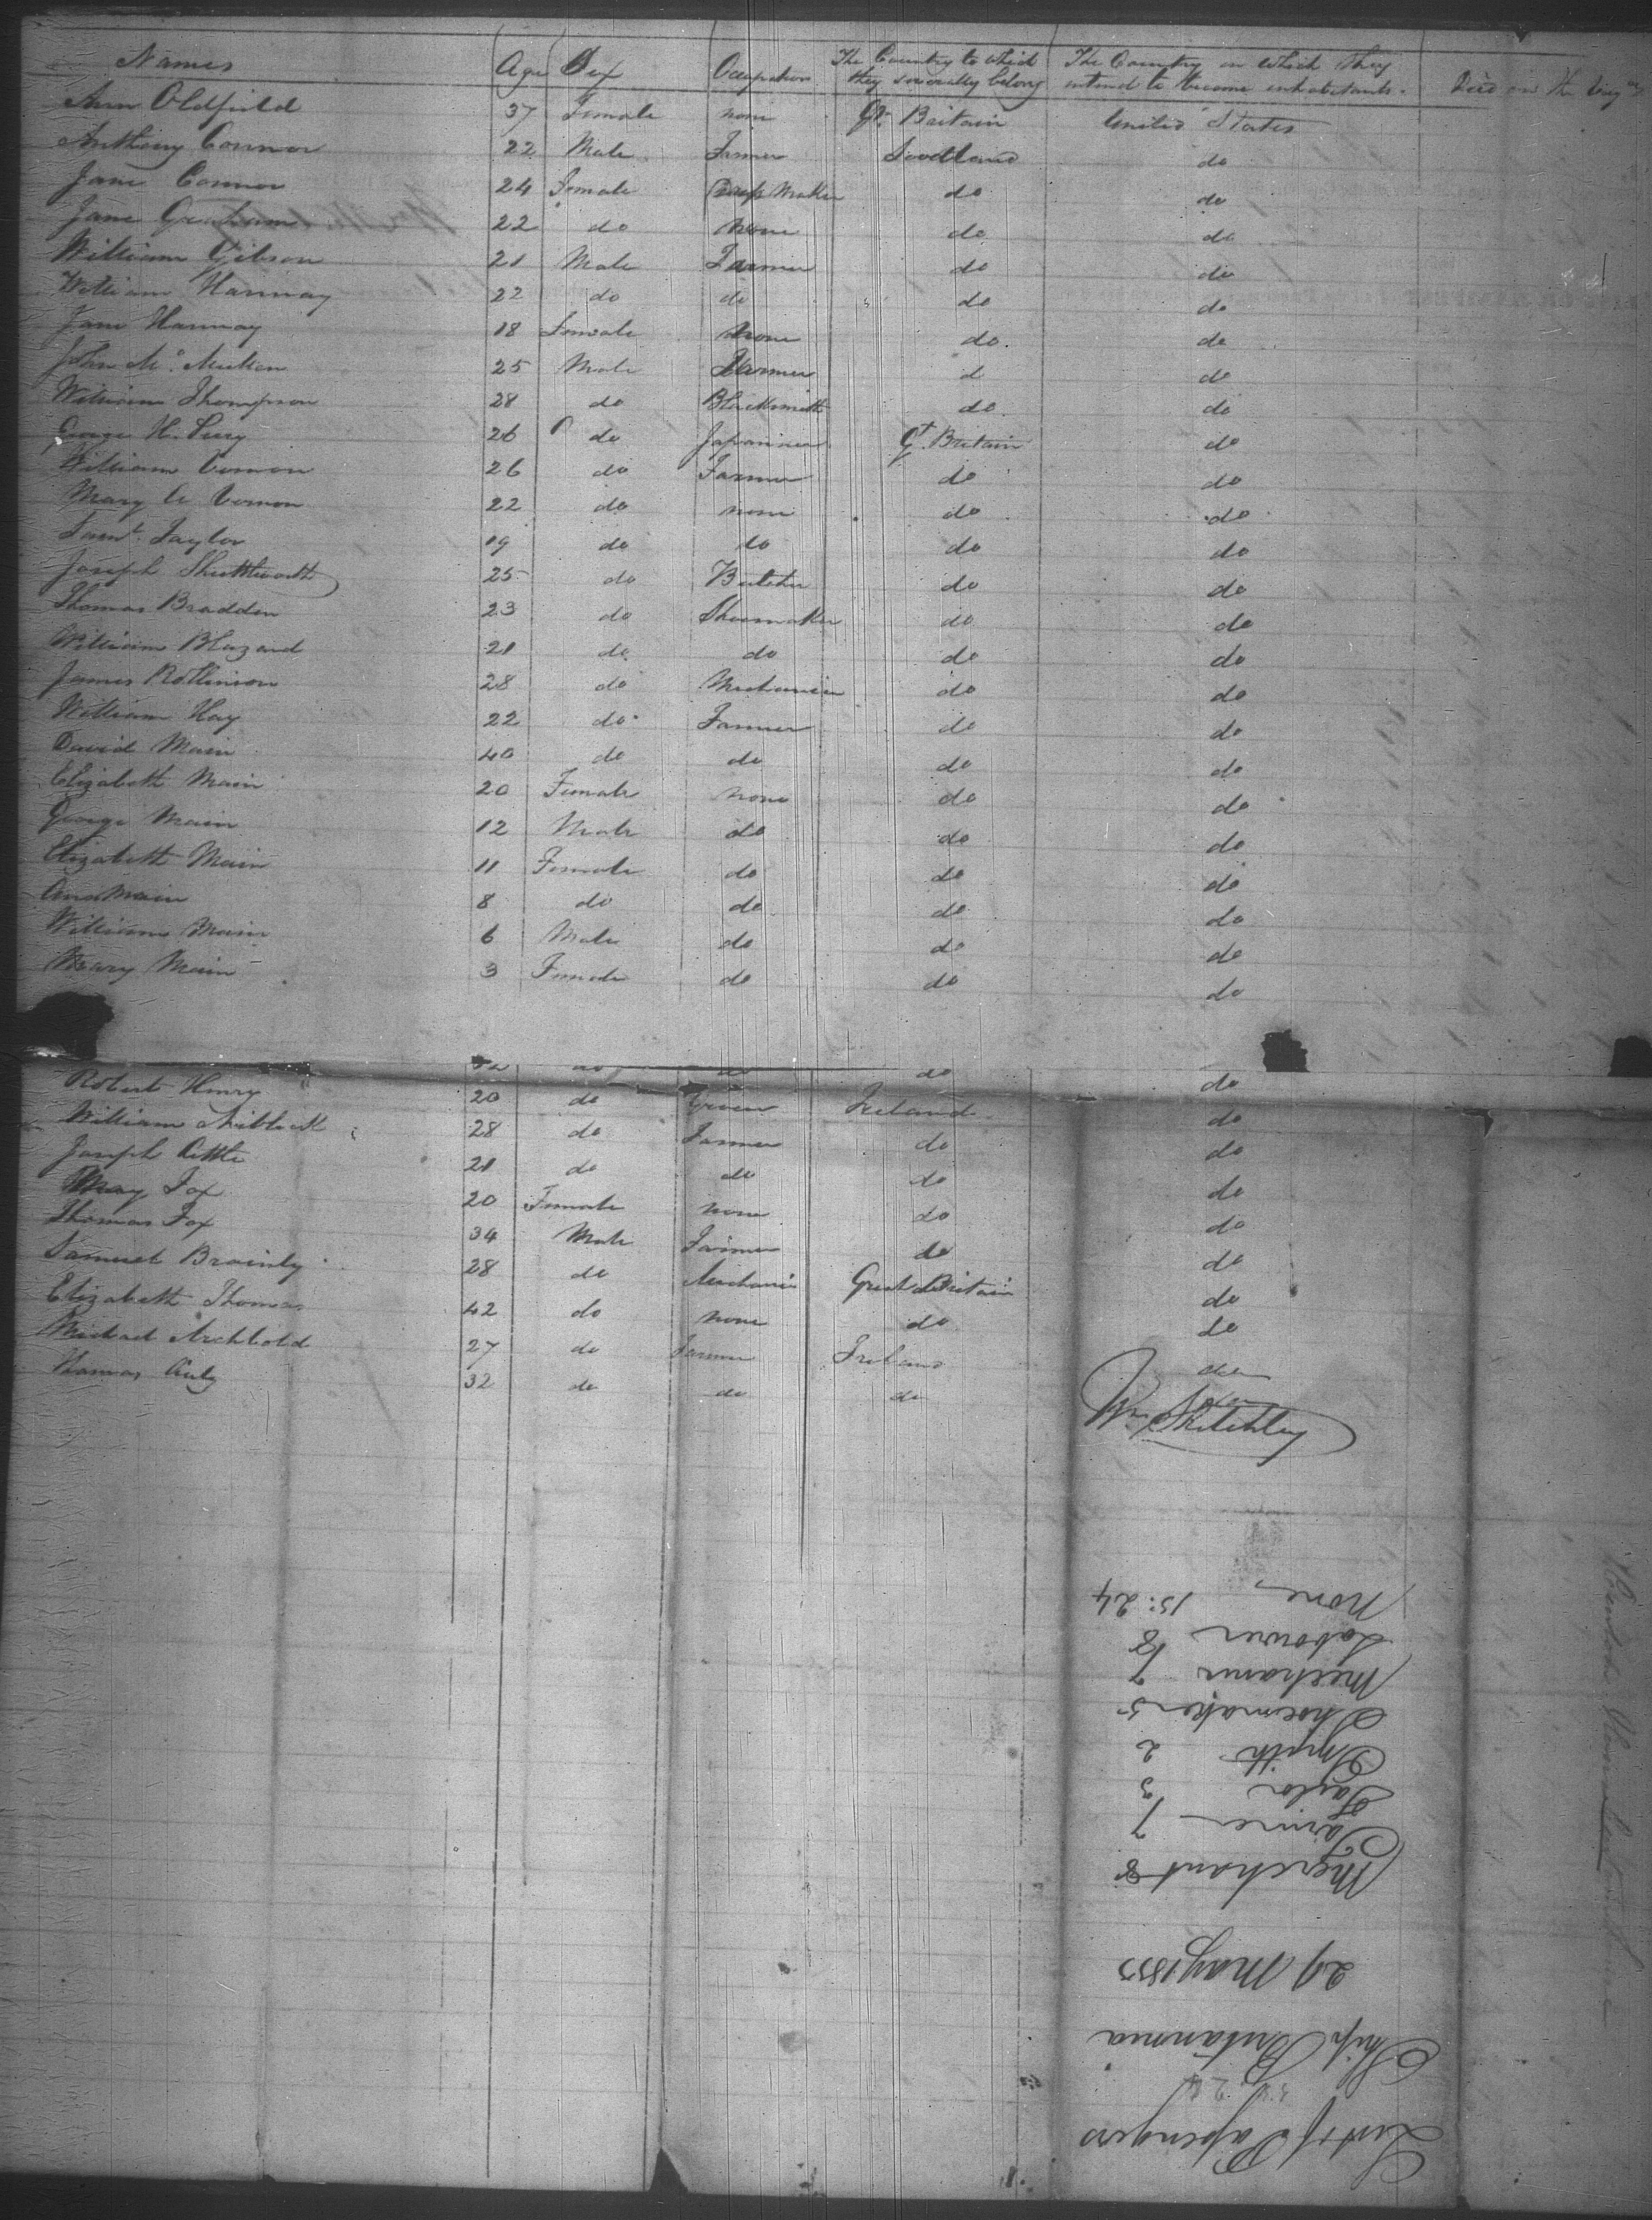 Names Age Sex Occupation The Country to which they severally belong The Country in which they intend to become inhabitants. Died on the Voyage
Ann Oldfield 37 Female none Gt. Britain United States
Anthony Connor 22 Male Farmer Scotland do
Jane Connor 24 Female Maker do do
Jane Graham 22 do None do do
William Gibson 21 Male Farmer do do
William Hannay 22 do do do do
Jane Hannay 18 Female None do. do
John Mc. 25 Male Farmer d do
William Thompson 28 do Blacksmith do. do
George H. 26 do Japanner Gt. Britain do
William Vernon 26 do Farmer do do
Mary A Vernon 22 do none do do
Saml. Taylor 19 do do do do
Joseph Shuttleworth 25 do Butcher do do
Thomas Bradden 23 do Shoemaker do do
William Blazard 21 do do do do
James Rollinson 28 do Mechanic do do
William Hay 22 do Farmer do do
David Main 40 do do do do
Elizabeth Main 20 Female None do do
George Main 12 Male do do do
Elizabeth Main 11 Female do do do
Ann Main 8 do do do do
William Main 6 Male do do do
Mary Main 3 Female do do do
do do do do
Robert Henry 20 do Ireland do
William 28 do Farmer do do
Joseph 21 do do do do
Mary Fox 20 Female none do do
Thomas Fox 34 Male Farmer do do
Samuel 28 do Mechanic Great Britain do
Elizabeth Thomas 42 do none do do
Michael Archbold 27 do Farmer Ireland do
Thomas 32 do do do do
Wm. Sketchley
List of Pasengers
Ship Britannia
29 May 1835
Merchant 8
Farmer 7
Taylor 3
Smith 2
Shoemaker 5
Mechanic 7
Labourer 8
None 15: 24